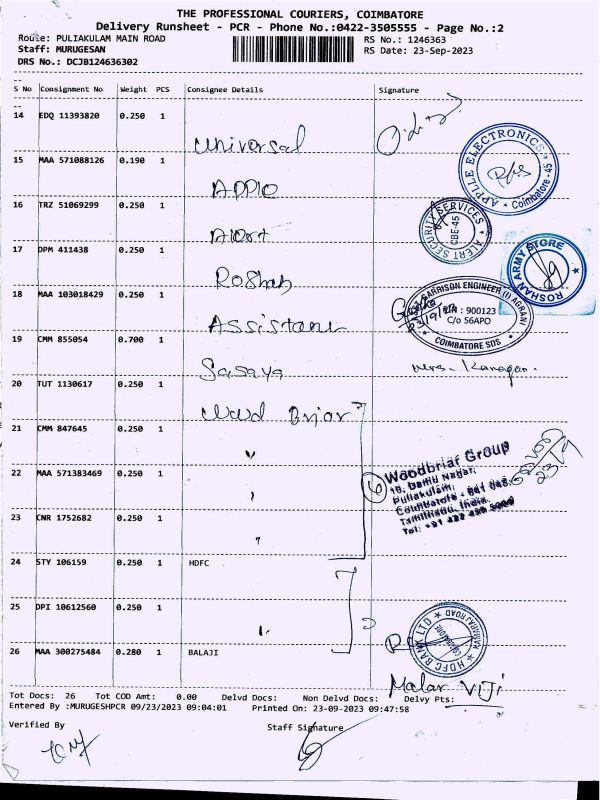 THE PROFESSIONAL COURIERS, COIMBATORE
Delivery Runsheet - PCR - Phone No.:0422-3505555 - Page No.:2
Route: PULIAKULAM MAIN ROAD RS No.: 1246363
Staff: MURUGESAN RS Date: 23-Sep-2023
DRS No.: DCJB124636302
S No Consignment No Weight PCS Consignee Details Signature
14 EDQ 11393820 0.250 1
Universal
15 MAA 571088126 0.190 1
APPLE
APPLLE ELECTRONICS * Coimbatore-45 *
16 TRZ 51069299 0.250 1
Alert
ALERT SECURITY SERVICES * CBE-45
17 DPM 411438 0.250 1
Roshan
ROSHAN ARMY STORE
18 MAA 103018429 0.250 1
Assistant
GARRISON ENGINEER (I) AGRANI
PIN : 900123
C/o 56APO
* COIMBATORE SDS *
19 CMM 855054 0.700 1
20 TUT 1130617 0.250 1
Wood Briar
21 CMM 847645 0.250 1
22 MAA 571383469 0.250 1
Woodbriar Group
Puliakulam,
Coimbatore - 641 045.
Tamilnadu, India.
23/9
23 CNR 1752682 0.250 1
24 STY 106159 0.250 1 HDFC
25 DPI 10612560 0.250 1
26 MAA 300275484 0.280 1 BALAJI
* HDFC BANK LTD *
Malar Viji
Tot Docs: 26 Tot COD Amt: 0.00 Delvd Docs: Non Delvd Docs: Delvy Pts:
Entered By :MURUGESHPCR 09/23/2023 09:04:01 Printed On: 23-09-2023 09:47:58
Verified By Staff Signature